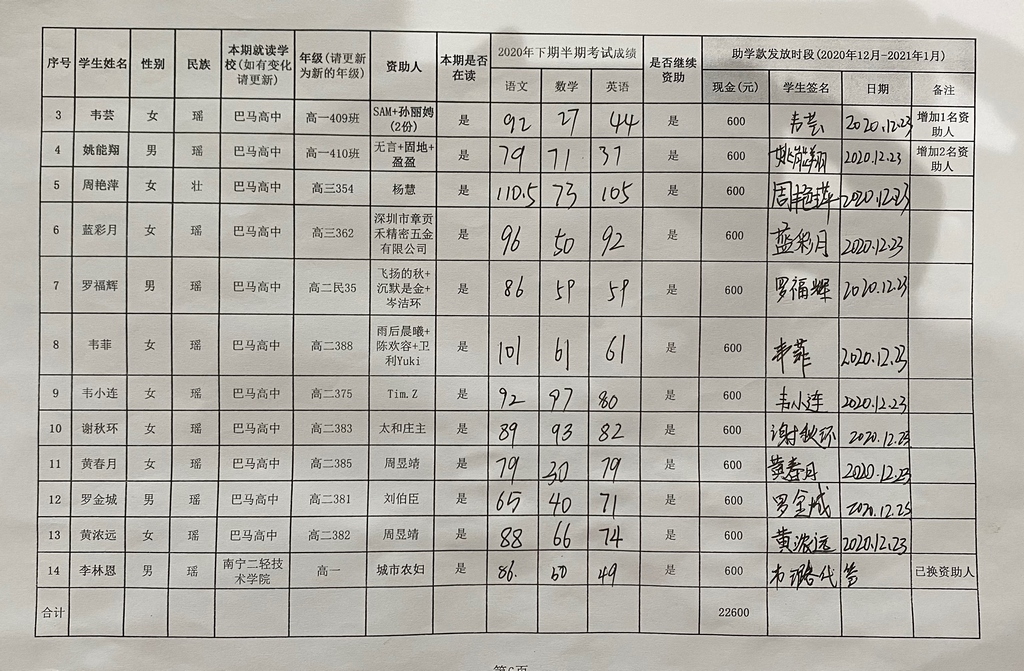 序号 学生姓名 性别 民族 本期就读学校(如有变化请更新) 年级(请更新为新的年级) 资助人 本期是否在读 2020年下期半期考试成绩 是否继续资助 助学款发放时段(2020年12月-2021年1月)
语文 数学 英语 现金(元) 学生签名 日期 备注
3 韦芸 女 瑶 巴马高中 高一409班 SAM+孙丽娉(2份) 是 92 27 44 是 600 韦芸 2020.12.23 增加1名资助人
4 姚能翔 男 瑶 巴马高中 高一410班 无言+固地+盈盈 是 79 71 37 是 600 姚能翔 2020.12.23 增加2名资助人
5 周艳萍 女 壮 巴马高中 高三354 杨慧 是 110.5 73 105 是 600 周艳萍 2020.12.23
6 蓝彩月 女 瑶 巴马高中 高三362 深圳市章贡禾精密五金有限公司 是 96 50 92 是 600 蓝彩月 2020.12.23
7 罗福辉 男 瑶 巴马高中 高二民35 飞扬的秋+沉默是金+岑洁环 是 86 59 59 是 600 罗福辉 2020.12.23
8 韦菲 女 瑶 巴马高中 高二388 雨后晨曦+陈欢容+卫利Yuki 是 101 61 61 是 600 韦菲 2020.12.23
9 韦小连 女 瑶 巴马高中 高二375 Tim.Z 是 92 97 80 是 600 韦小连 2020.12.23
10 谢秋环 女 瑶 巴马高中 高二383 太和庄主 是 89 93 82 是 600 谢秋环 2020.12.23
11 黄春月 女 瑶 巴马高中 高二385 周昱靖 是 79 30 79 是 600 黄春月 2020.12.23
12 罗金城 男 瑶 巴马高中 高二381 刘伯臣 是 65 40 71 是 600 罗金城 2020.12.23
13 黄浓远 女 瑶 巴马高中 高二382 周昱靖 是 88 66 74 是 600 黄浓远 2020.12.23
14 李林恩 男 瑶 南宁二轻技术学院 高一 城市农妇 是 86. 60 49 是 600 代签 已换资助人
合计 22600